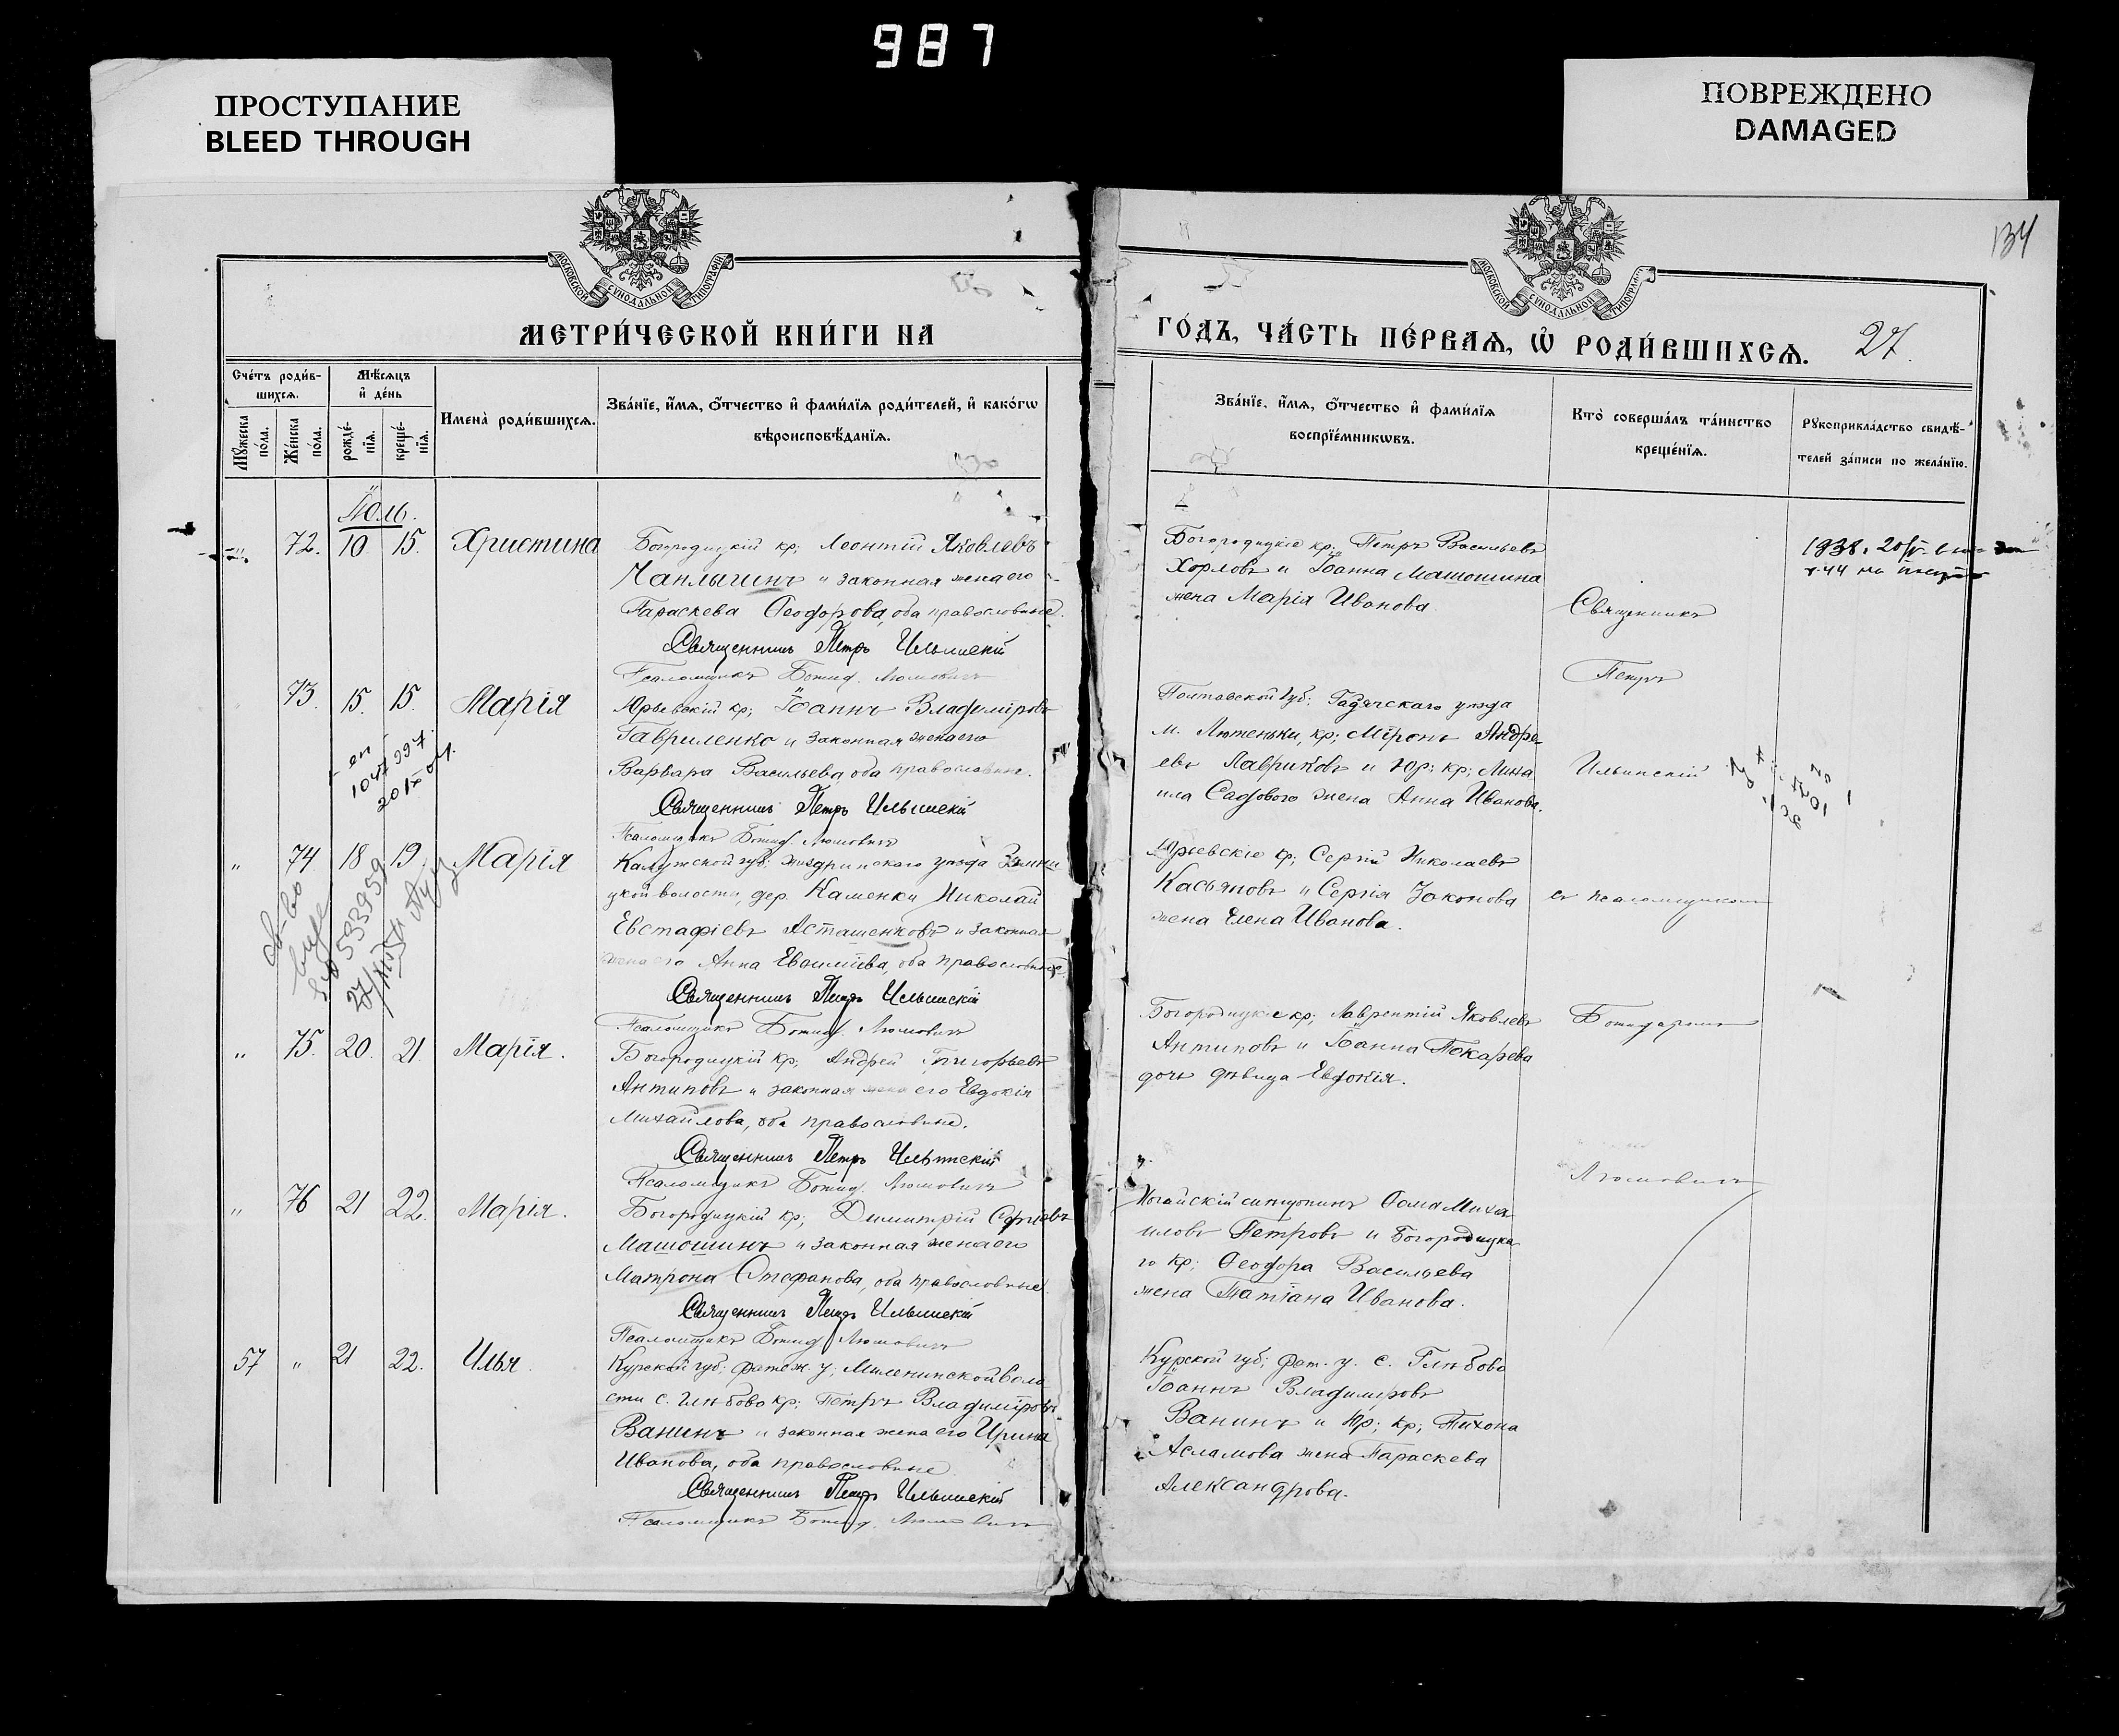 987
ПРОСТУПАНИЕ
BLEED THROUGH
ПОВРЕЖДЕНО
DAMAGED
134
МОСКОВСКОЙ СѴНОДАЛЬНОЙ ТИПОГРАФІИ
МОСКОВСКОЙ СѴНОДАЛЬНОЙ ТИПОГРАФІИ
МЕТРИ́ЧЕСКОЙ КНИ́ГИ НА
ГО́ДЪ, ЧА́СТЬ ПЕ́РВАѦ, Ѡ҆ РОДИ́ВШИХСѦ.
27.
Сче́тъ роди́в-
шихсѧ.
Мѣ́сѧцъ
и҆ де́нь
Мꙋ́жеска по́ла.
Же́нска по́ла.
рожде́-нїѧ.
креще́-нїѧ.
И҆мена̀ роди́вшихсѧ.
Зва́нїе, и҆́мѧ, ѻ҆́тчество и҆ фами́лїѧ роди́телей, и҆ како́гѡ
вѣроисповѣ́данїѧ.
Зва́нїе, и҆́мѧ, ѻ҆́тчество и҆ фами́лїѧ
воспрїе́мникѡвъ.
Кто̀ соверша́лъ та́инство
креще́нїѧ.
Рꙋкоприкла́дство свидѣ́-
телей за́писи по жела́нїю.
Іюль.
72. 10. 15. Христина
Богородицкій кр; Леонтій Яковлевъ
Чаплыгинъ и законная жена его
Параскева Ѳеодорова, оба православные.
Священникъ Петръ Ильинскій
Псаломщикъ Божид. Люмовичъ
Богородицкіе кр; Петръ Васильевъ
Хорловъ и Іоанна Машошина
жена Марія Иванова.
Священникъ
1938. 20/IV
73. 15. 15. Марія
Юрьевскій кр; Іоаннъ Владиміровъ
Гавриленко и законная жена его
Варвара Васильева оба православные.
Священникъ Петръ Ильинскій
Псаломщикъ Божид. Люмовичъ
Полтавской губ; Гадячскаго уѣзда
м. Лютеньки, кр; Міронъ Андре-
евъ Лавриковъ и Юр; кр; Миха
ила Садоваго жена Анна Иванова.
Петръ
Ильинскій
" 74 18 19. Марія
Калужской губ; Жиздринскаго уѣзда
цкой волости, дер. Каменки Николай
Евстафіевъ Асташенковъ и законная
жена его Анна оба православные
Священникъ Петръ Ильинскій
Псаломщикъ Божид. Люмовичъ
Юрьевскіе кр; Сергій Николаевъ
Касьяновъ и Сергія Законова
жена Елена Иванова.
съ псаломщикомъ
533959
" 75. 20. 21. Марія.
Богородицкій кр; Андрей Григорьевъ
Антиповъ и законная жена его Евдокія
Михайлова, оба православные.
Священникъ Петръ Ильинскій
Псаломщикъ Божид. Люмовичъ
Богородицкіе кр; Лаврентій Яковлевъ
Антиповъ и Іоанна Токарева
дочь дѣвица Евдокія.
Божидаромъ
" 76 21 22. Марія.
Богородицкій кр; Димитрій Сергіевъ
Машошинъ и законная жена его
Матрона Стефанова, оба православные.
Священникъ Петръ Ильинскій
Псаломщикъ Божид. Люмовичъ
Ногайскій Ѳома Миха
иловъ Петровъ и Богородицка
го кр; Ѳеодора Васильева
жена Татіана Иванова.
57 " 21 22. Илья.
Курской губ; Фатеж. у; Миленинской воло
сти с. Глѣбово кр; Петръ Владиміровъ
Ванинъ и законная жена его Ирина
Иванова, оба православные
Священникъ Петръ Ильинскій
Псаломщикъ Божид. Люмовичъ
Курской губ; Фат. у. с. Глѣбово
Іоаннъ Владиміровъ
Ванинъ и Юр; кр; Тихона
Асламова жена Параскева
Александрова.